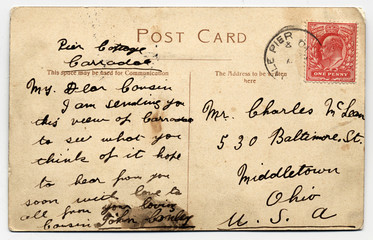 POST CARD
This space may be used for Communication
The Address to be written here
Pier Cottage
Carradale
My Dear Cousin
I am sending you
this view of Carradale
to see what you
thinks of it hope
to hear from you
soon with love to
all from your loving
Cousin John
Mr. Charles McLean
530 Baltimore St.
Middletown
Ohio
U.S.A
PIER
ONE PENNY